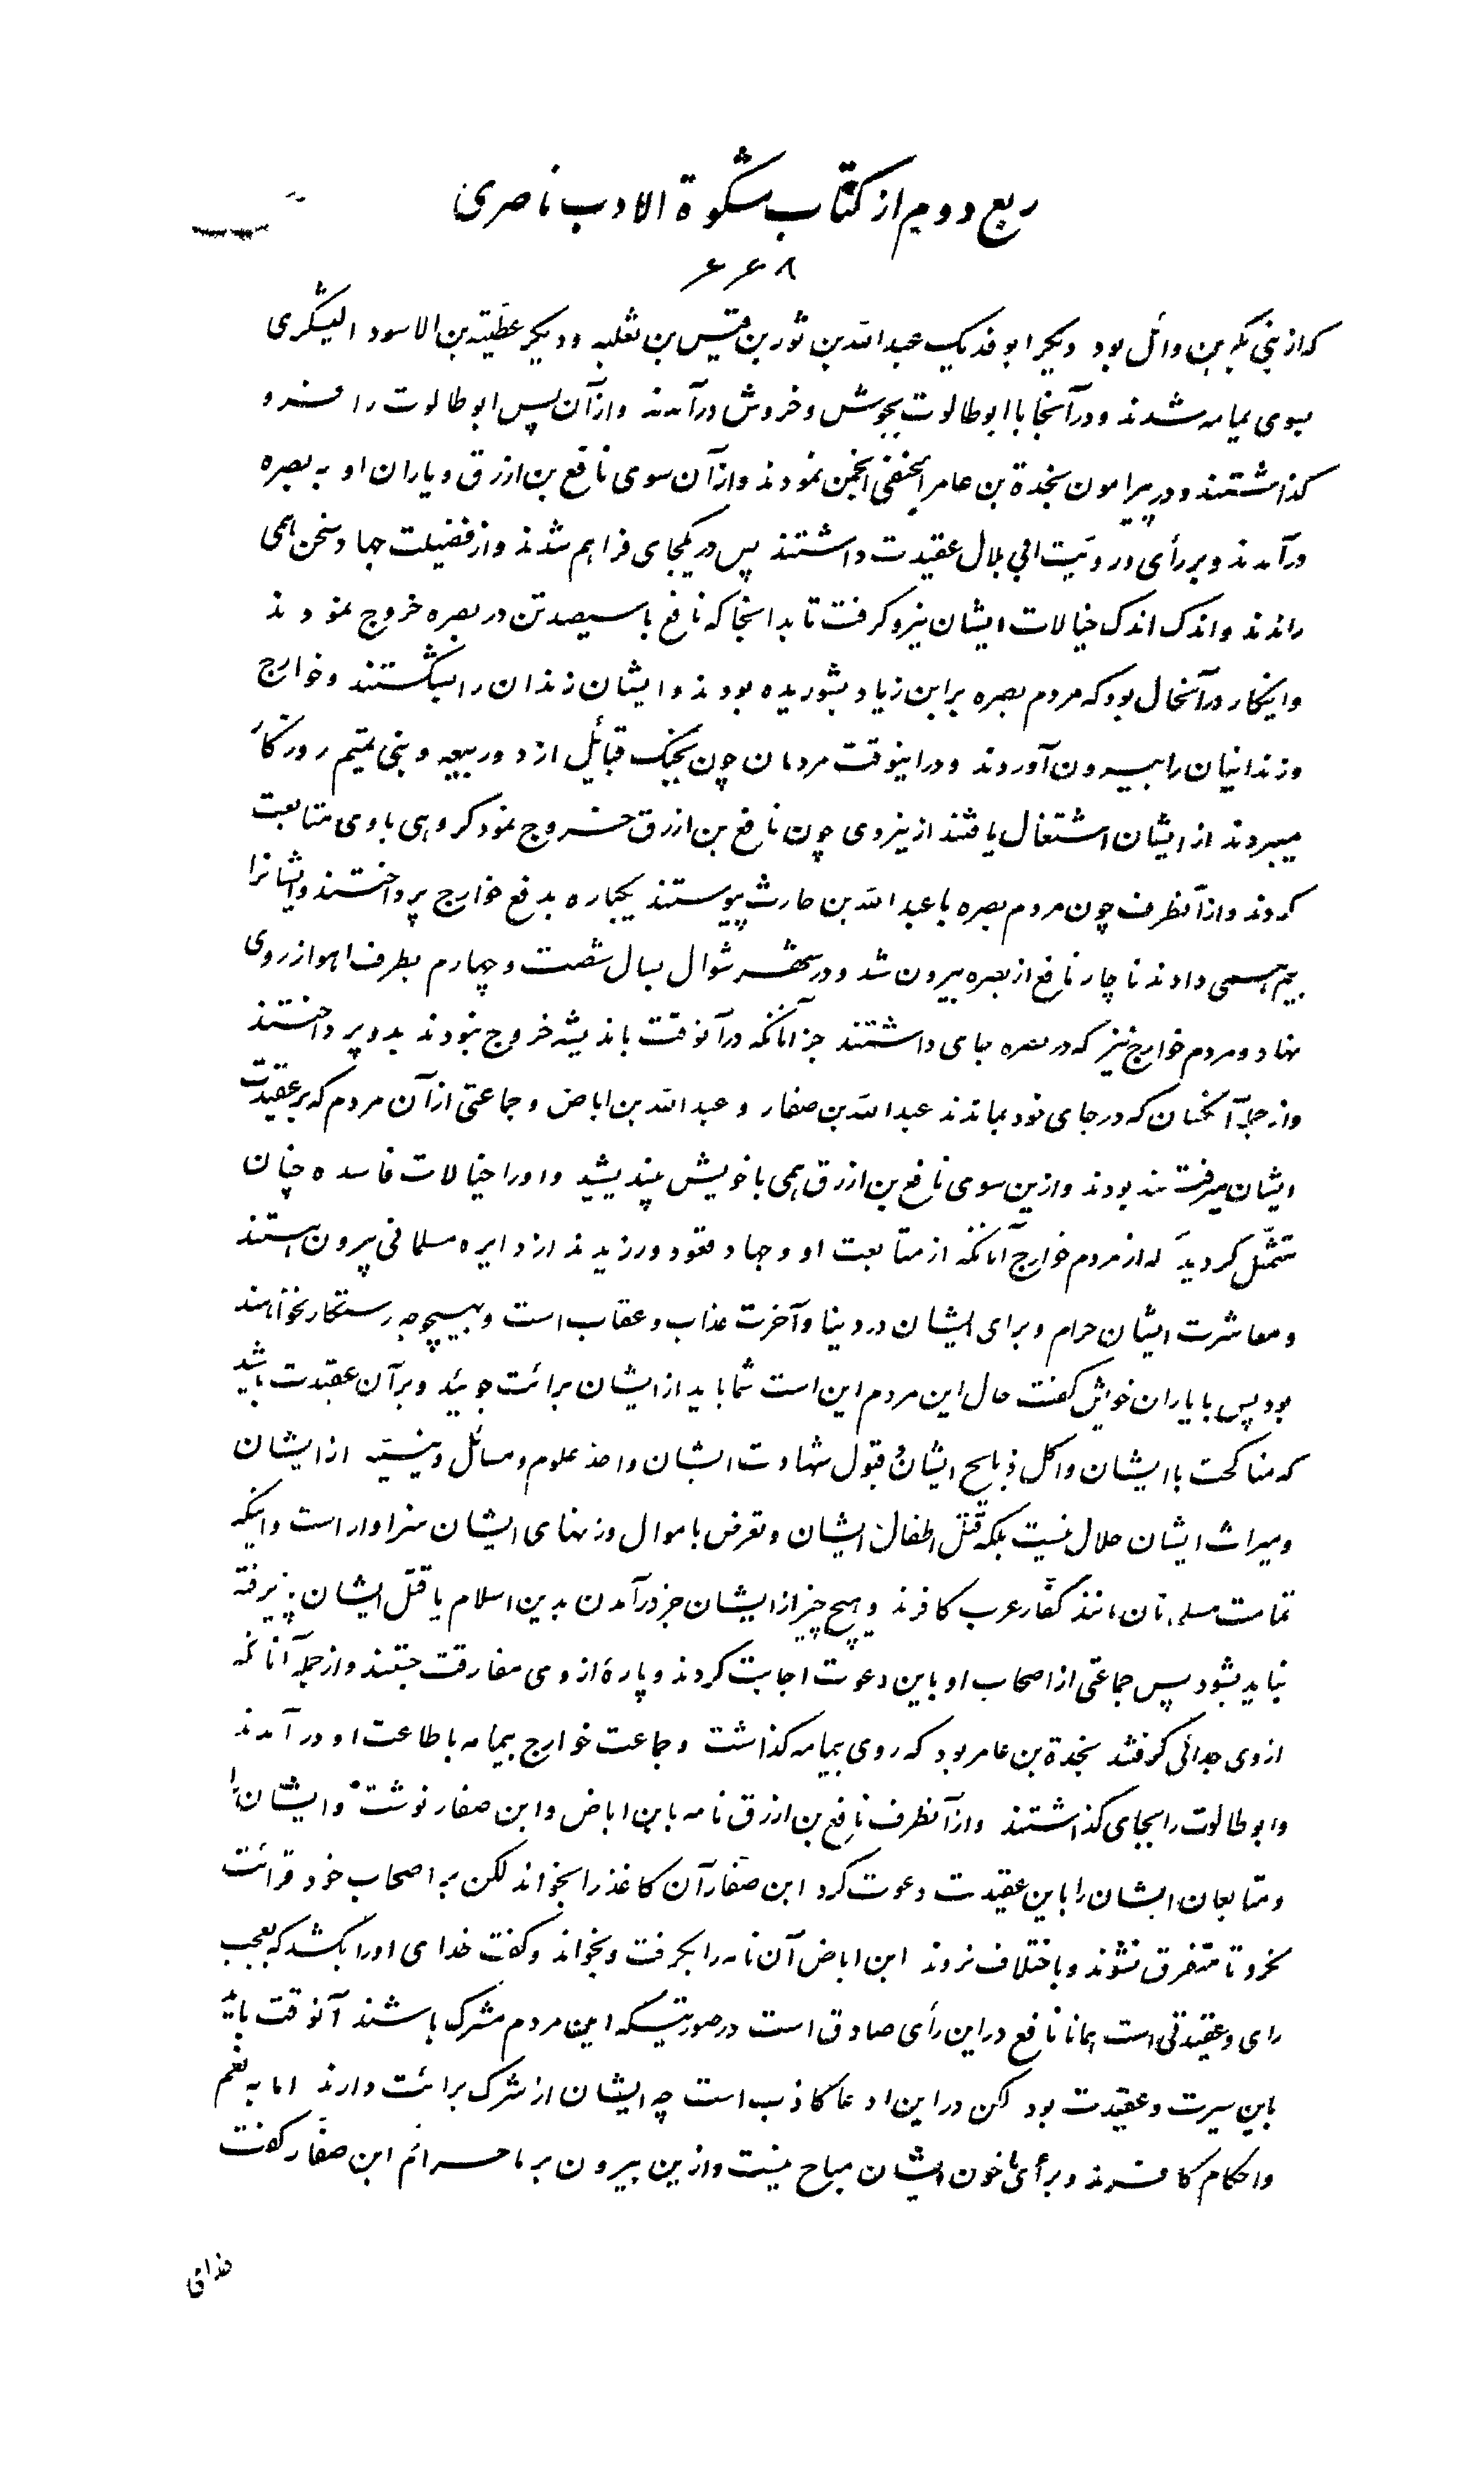 ربع دویم از کتاب مشکوة الادب ناصری
۶۶۸
که از بنی بکر بن وائل بود دیگر ابو فدیک عبدالله بن ثور بن قیس بن ثعلبه و دیگر عطیّة بن الاسود الیشکری
بسوی یمامه شدند و در آنجا با ابو طالوت بجوش و خروش درآمدند و از آن پس ابو طالوت را فرو
گذاشتند و در پیرامون نجدة بن عامر الحنفی انجمن نمودند و از آن سوی نافع بن ازرق و یاران او به بصره
درآمدند و بر رأی و رویّت ابی بلال عقیدت داشتند پس در یکجای فراهم شدند و از فضیلت جهاد سخن همی
راندند و اندک اندک خیالات ایشان نیرو گرفت تا بدانجا که نافع با سیصد تن در بصره خروج نمودند
و اینکار در آنحال بود که مردم بصره بر ابن زیاد بشوریده بودند و ایشان زندان را بشکستند و خوارج
و زندانیان را بیرون آوردند و در اینوقت مردمان چون بجنگ قبایل ازد و ربیعه و بنی تمیم روزگار
میبردند از ایشان اشتغال یافتند از ینروی چون نافع بن ازرق خروج نمود گروهی با وی متابعت
کردند و از آنطرف چون مردم بصره با عبدالله بن حارث پیوستند یکباره بدفع خوارج پرداختند و ایشانرا
بیم همی دادند ناچار نافع از بصره بیرون شد و در شهر شوال بسال شصت و چهارم بطرف اهواز روی
نهاد و مردم خوارج نیز که در بصره جای داشتند جز آنانکه در آنوقت باندیشه خروج نبودند بدو پرداختند
و از جمله آنکسان که در جای خود بماندند عبدالله بن صفار و عبدالله بن اباض و جماعتی از آن مردم که بر عقیدت
ایشان میرفتند بودند و ازین سوی نافع بن ازرق همی با خویش بیندیشید و او را خیالات فاسده چنان
متمثّل گردید که از مردم خوارج آنانکه از متابعت او و جهاد قعود ورزیدند از دایره مسلمانی بیرون هستند
و معاشرت ایشان حرام و برای ایشان در دنیا و آخرت عذاب و عقاب است و بهیچوجه رستگار نخواهند
بود پس با یاران خویش گفت حال این مردم این است شما باید از ایشان برائت جوئید و بر آن عقیدت باشید
که مناکحت با ایشان و اکل ذبایح ایشان و قبول شهادت ایشان و اخذ علوم و مسائل دینیّه از ایشان
و میراث ایشان حلال نیست بلکه قتل اطفال ایشان و تعرض باموال و زنهای ایشان سزاوار است و اینکه
تمامت مسلمانان مانند کفّار عرب کافرند و هیچ چیز از ایشان جز درآمدن بدین اسلام یا قتل ایشان پذیرفته
نباید بشود پس جماعتی از اصحاب او باین دعوت اجابت کردند و پارهٔ از وی مفارقت جستند و از جمله آنانکه
از وی جدائی گرفتند نجدة بن عامر بود که روی بیمامه گذاشت و جماعت خوارج یمامه باطاعت او درآمدند
و ابو طالوت را بجای گذاشتند و از آنطرف نافع بن ازرق نامه بابن اباض و ابن صفار نوشت و ایشان را
و متابعان ایشان را باین عقیدت دعوت کرد ابن صفّار آن کاغذ را بخواند لکن بر اصحاب خود قرائت
نکرد تا متفرق نشوند و باختلاف نروند ابن اباض آن نامه را بگرفت و بخواند و گفت خدای او را بکشد که بعجب
رای و عقیدتی است همانا نافع در این رأی صادق است در صورتیکه این مردم مشرک باشند آنوقت باید
باین سیرت و عقیدت بود لکن در این ادعا کاذب است چه ایشان از شرک برائت دارند اما به نعم
و احکام کافرند و برأی ما خون ایشان مباح نیست و ازین بیرون بر ما حرام ابن صفّار گفت
خدای